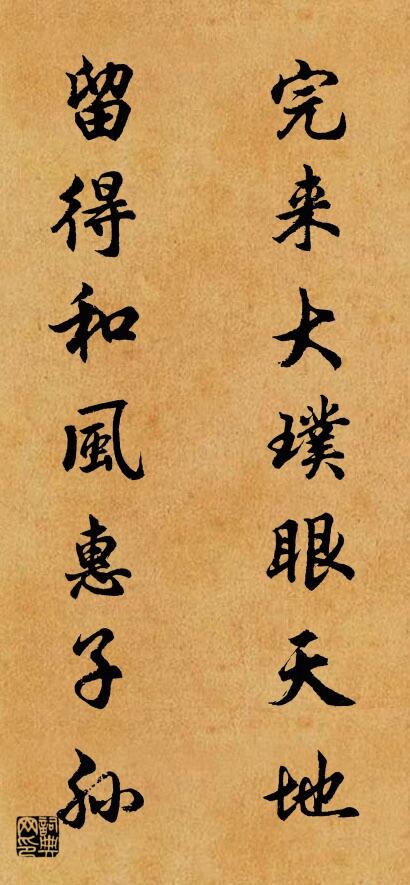 完来大璞眼天地
留得和風惠子孫
詞典网印